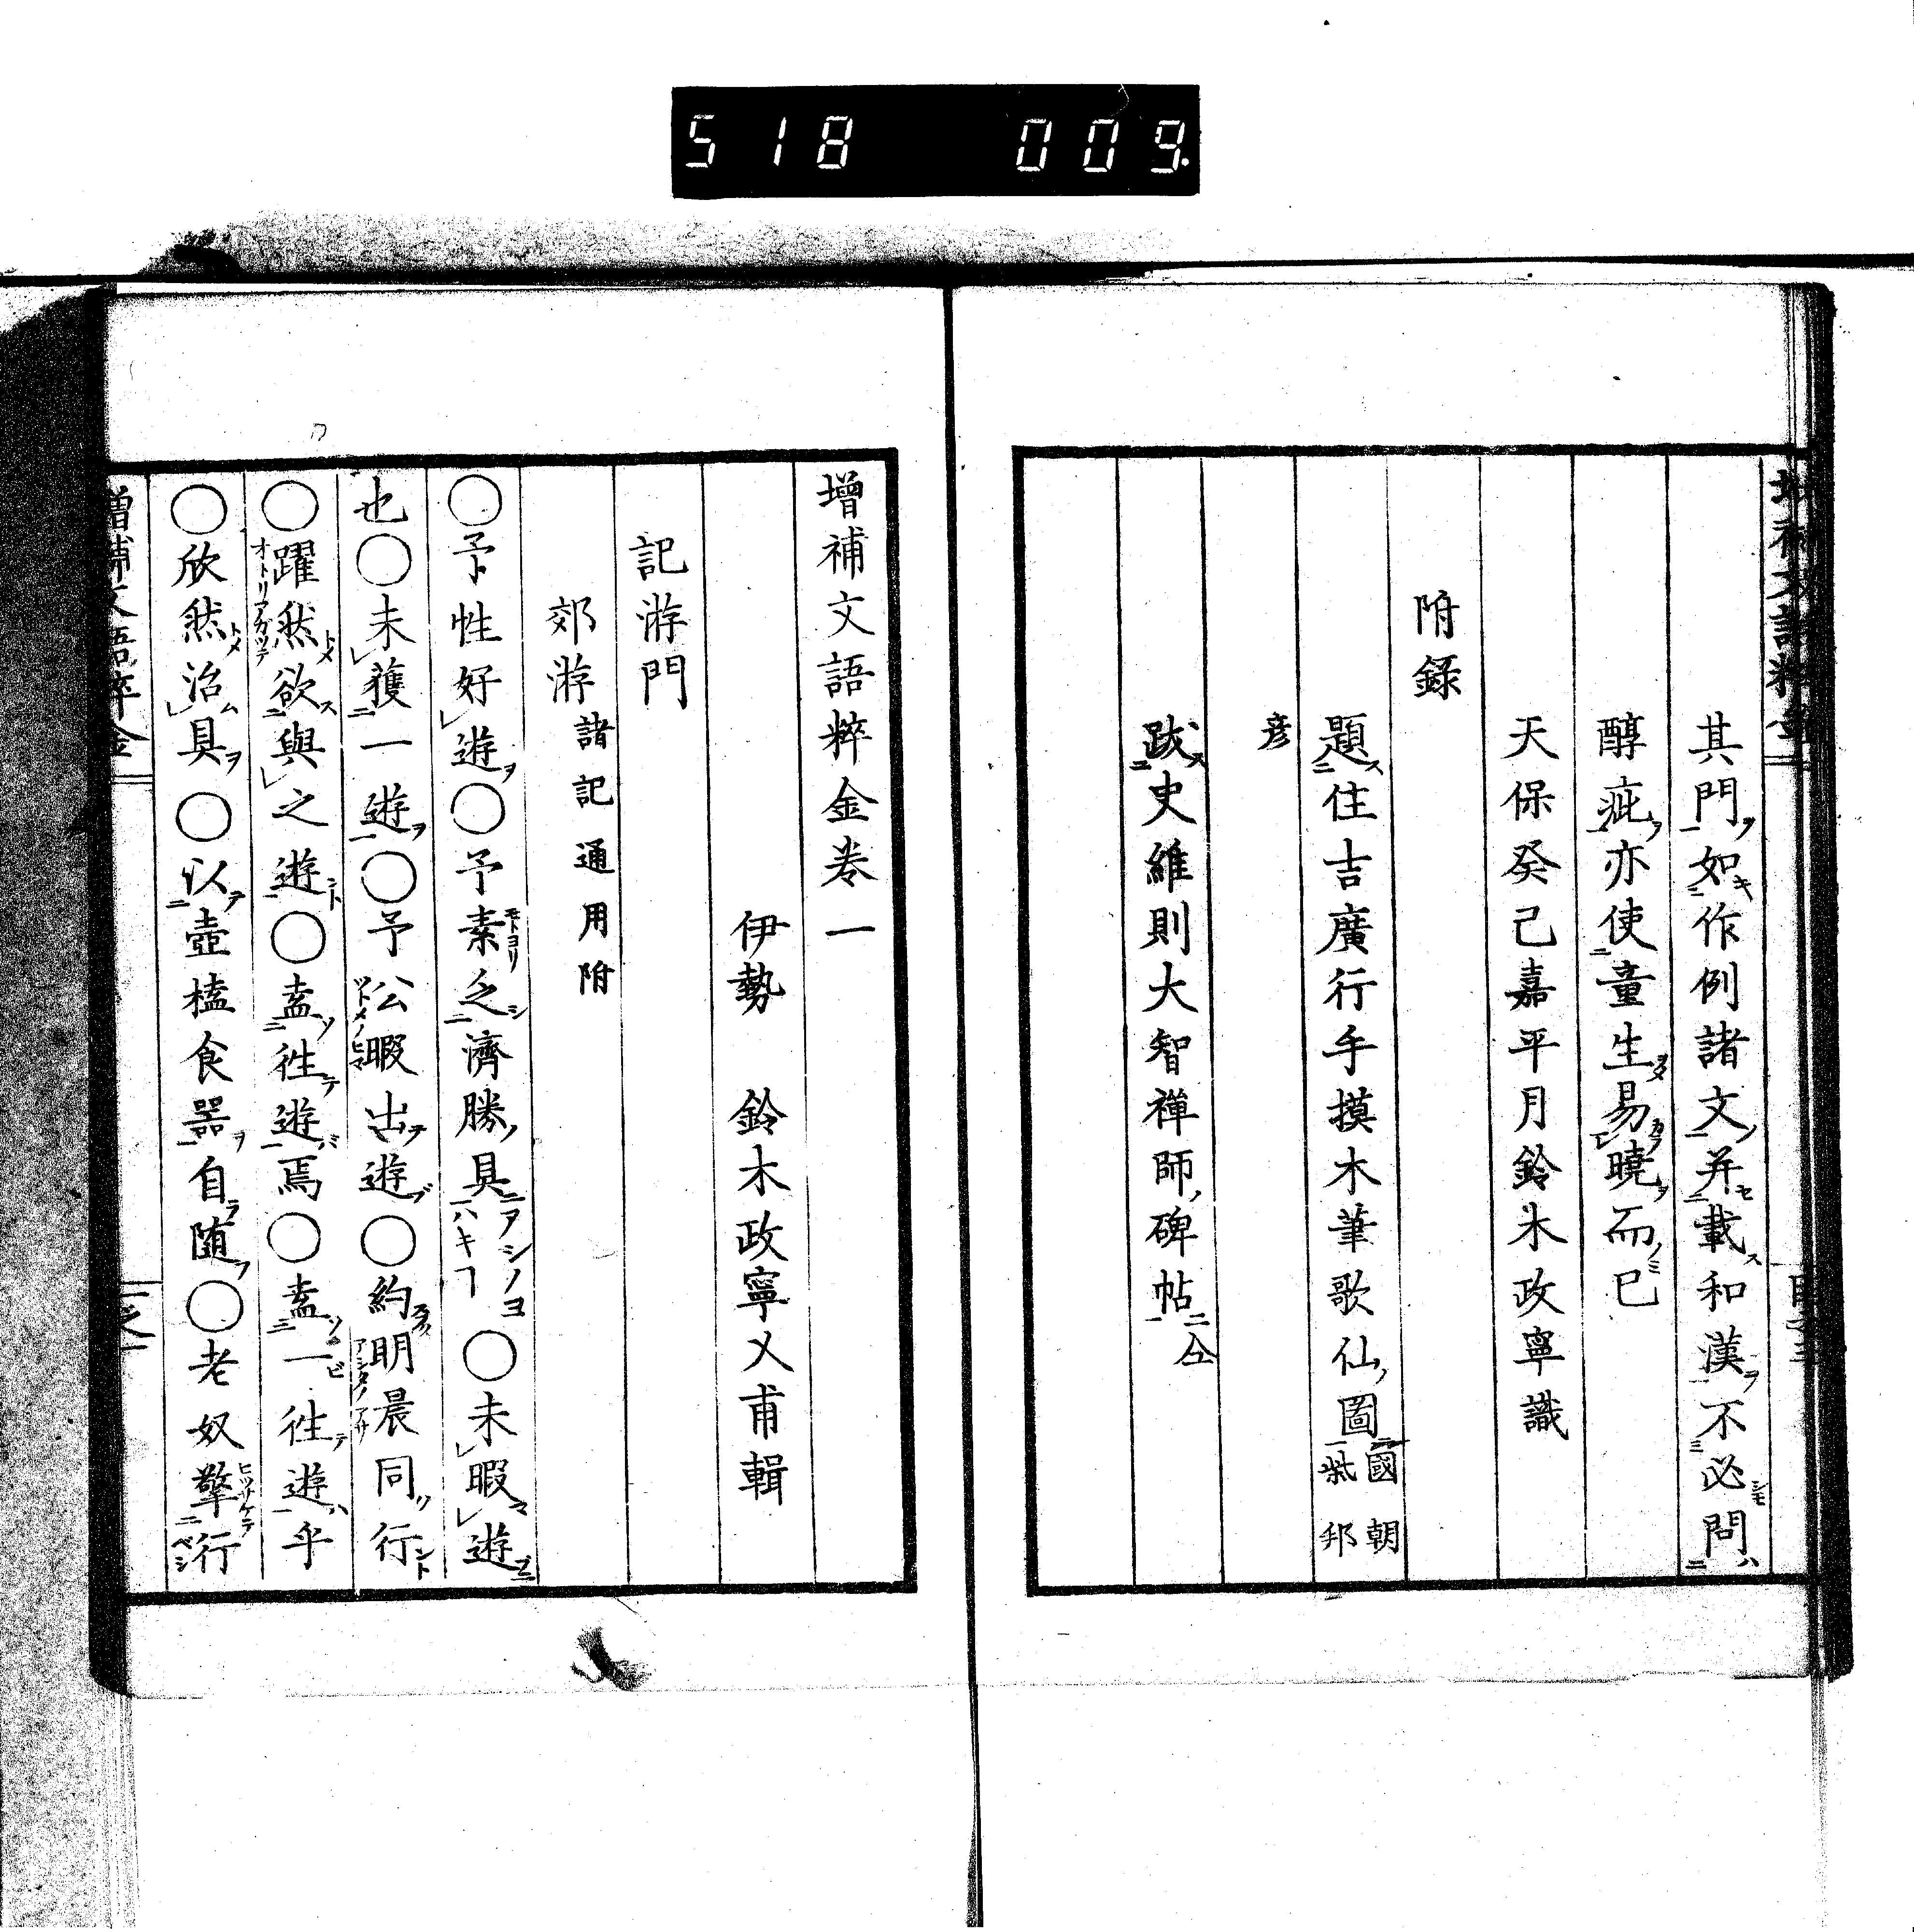 518 009
其門如作例諸文并載和漢不必問
醇疵亦使童生易曉而已
天保癸己嘉平月鈴木政寧識
附錄
題住吉廣行手摸木筆歌仙圖 國朝
邦
彥
跋史維則大智禪師碑帖
增補文語粹金卷一
伊勢 鈴木政寧乂甫輯
記游門
郊游 諸記通用附
○予性好遊○予素乏濟勝具○未暇遊
也○未獲一遊○予公暇出遊○約明晨同行
○躍然欲與之遊○盍徃遊焉○盍一徃遊乎
○欣然治具○以壺榼食器自随○老奴擎行
增補文語粹金